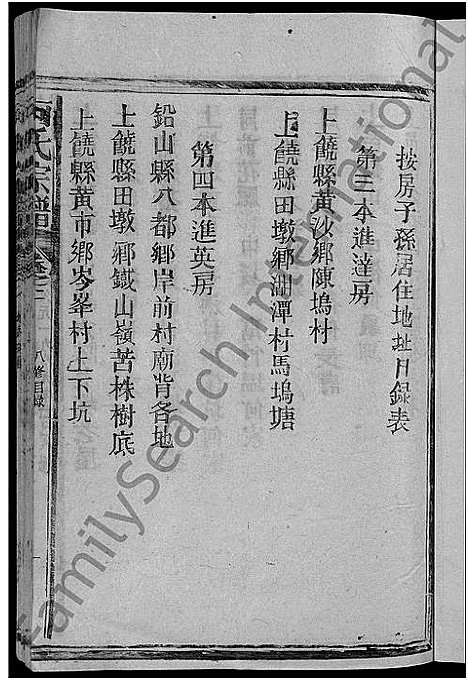 按房子孫居住地址目錄表
第三本進達房
上饒縣黃沙鄉陳塢村
上饒縣田墩鄉湖潭村馬塢塘
第四本進英房
鉛山縣八都鄉岸前村廟背各地
上饒縣田墩鄉鐵山嶺苦株樹底
上饒縣黃市鄉岑峯村上下坑
氏宗譜
八修目錄
FamilySearch International